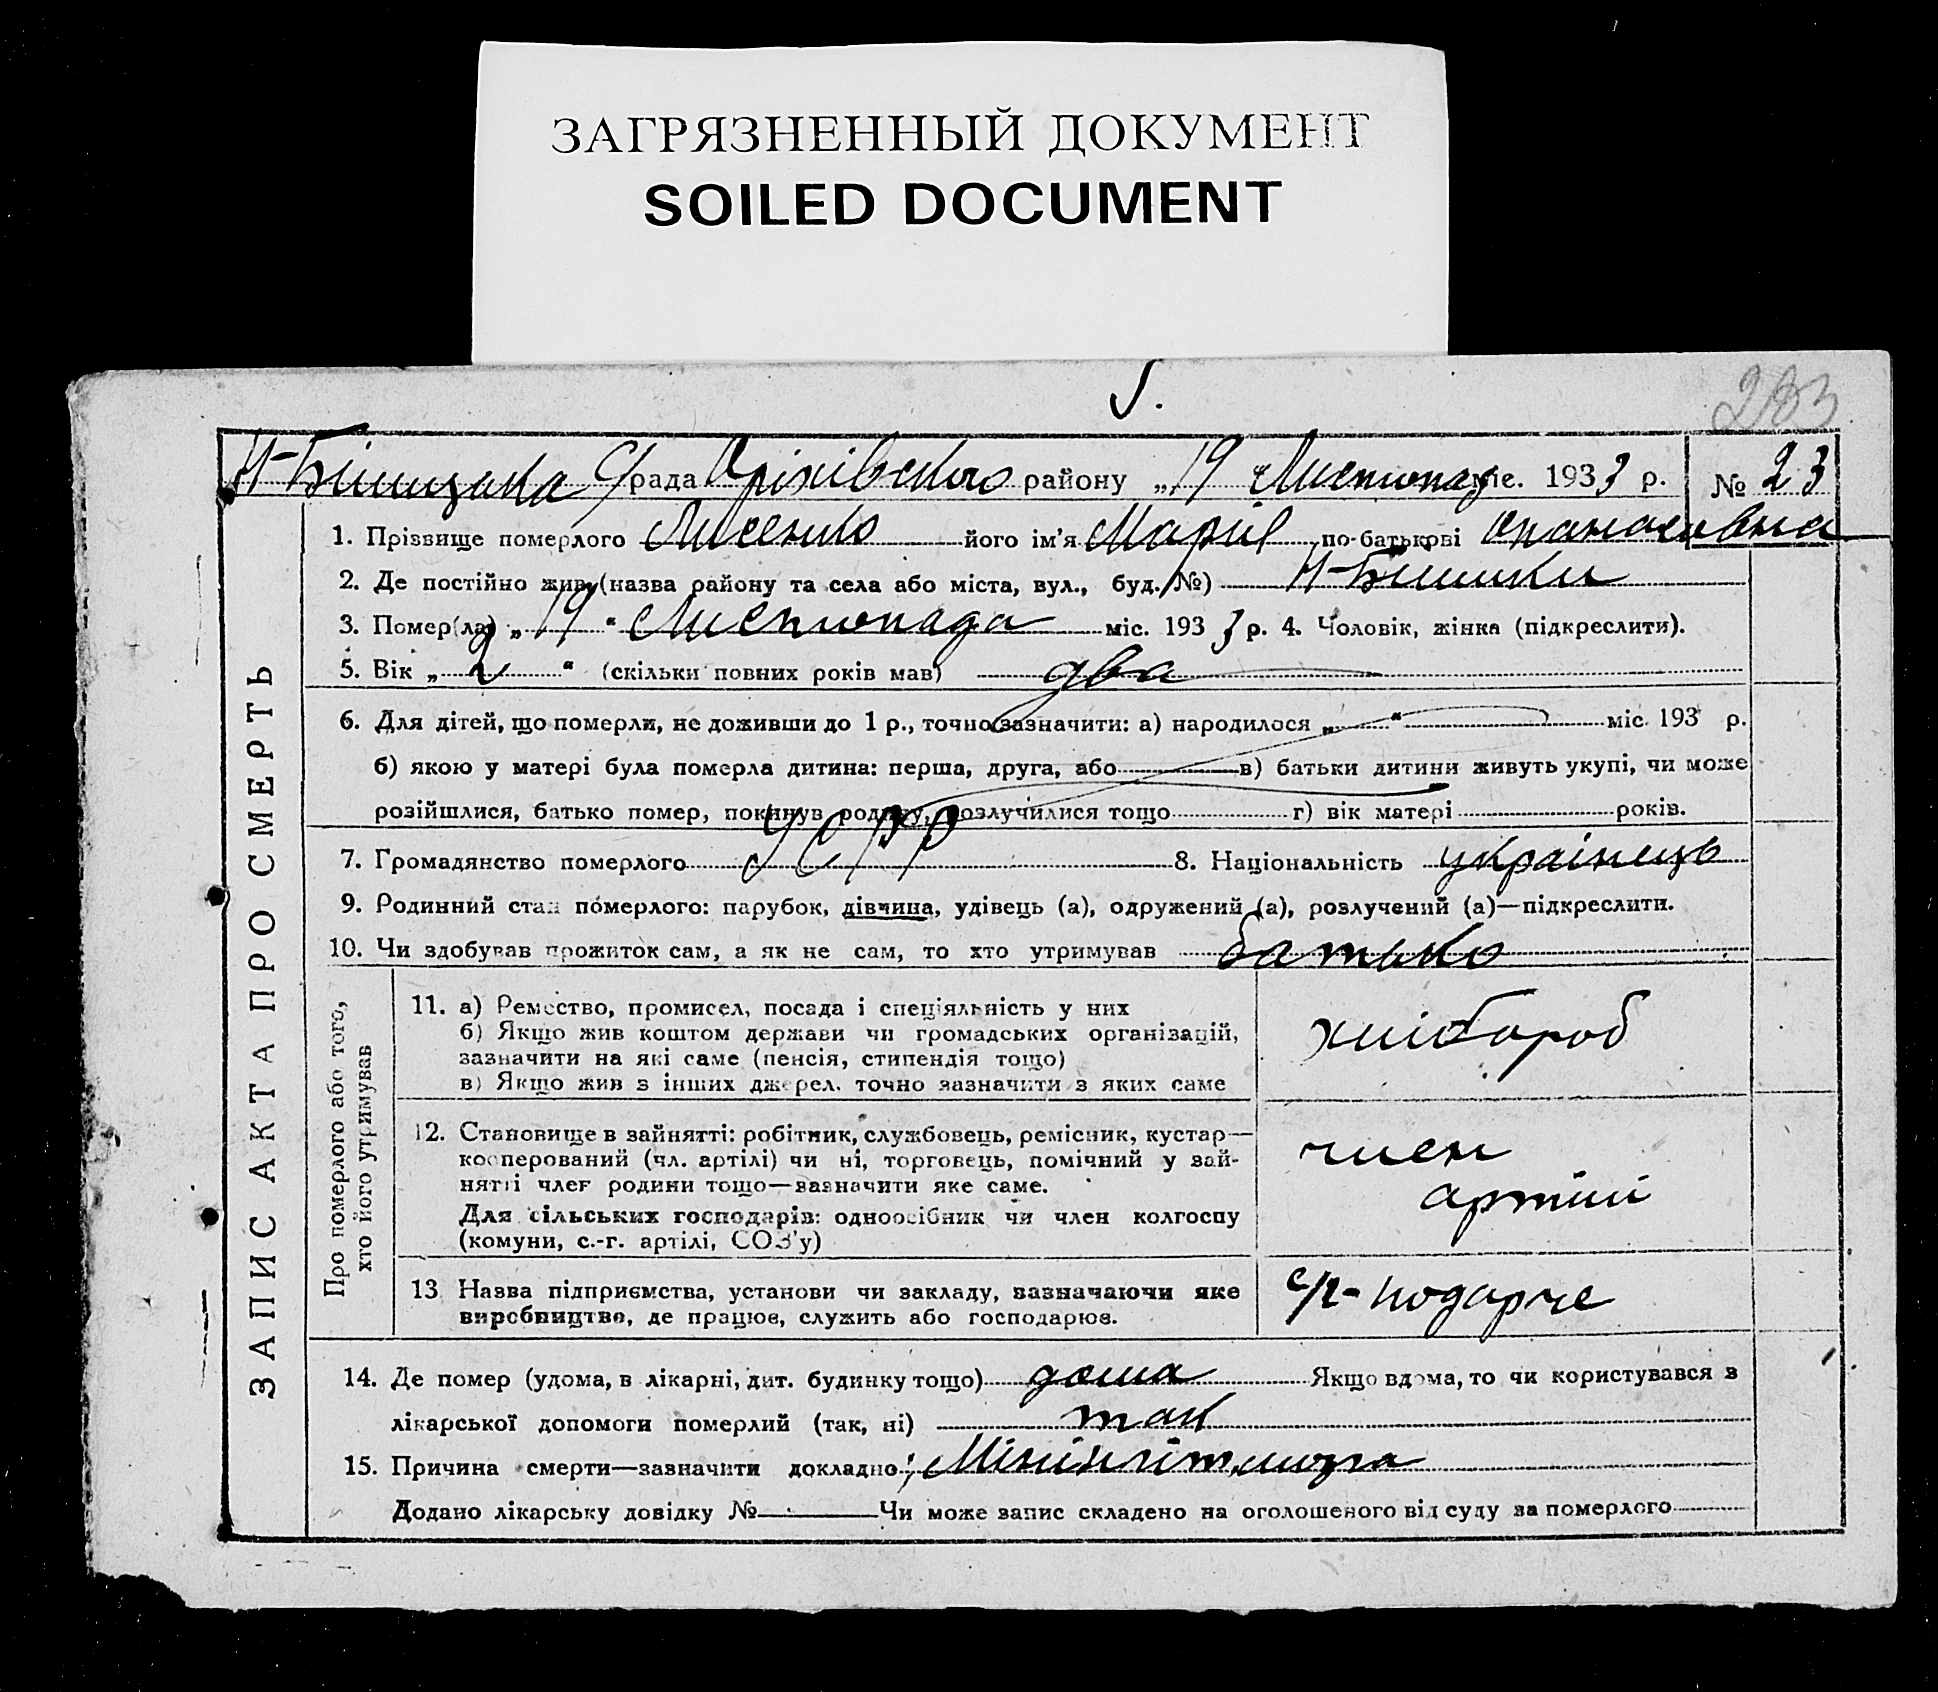 ЗАГРЯЗНЕННЫЙ ДОКУМЕНТ
SOILED DOCUMENT
283
Н-Білицька С/рада Оріхівського району „19 " Листопад міс. 1933 р. № 23
1. Прізвище померлого Лисенко його ім'я Марія по-батькові Опанасовна
2. Де постійно жив (назва району та села або міста, вул., буд. №)
3. Помер(ла) „19" Листопада міс. 1933 р. 4. Чоловік, жінка (підкреслити).
5. Вік „2" (скільки повних років мав) два
6. Для дітей, що померли, не доживши до 1 р., точно зазначити: а) народилося „ " міс. 193 р.
б) якою у матері була померла дитина: перша, друга, або в) батьки дитини живуть укупі, чи може
розійшлися, батько помер, покинув родину, розлучилися тощо г) вік матері років.
7. Громадянство померлого УСРР 8. Національність українець
9. Родинний стан померлого: парубок, дівчина, удівець (а), одружений (а), розлучений (а)—підкреслити.
10. Чи здобував прожиток сам, а як не сам, то хто утримував батько
ЗАПИС АКТА ПРО СМЕРТЬ
Про померлого або того,
хто його утримував
11. а) Ремество, промисел, посада і спеціяльність у них
б) Якщо жив коштом держави чи громадських організацій,
зазначити на які саме (пенсія, стипендія тощо)
в) Якщо жив з інших джерел, точно зазначити з яких саме
хлібороб
12. Становище в зайнятті: робітник, службовець, ремісник, кустар—
кооперований (чл. артілі) чи ні, торговець, помічний у зай-
нятті член родини тощо—зазначити яке саме.
Для сільських господарів: одноосібник чи член колгоспу
(комуни, с.-г. артілі, СОЗ'у)
член
артілі
13 Назва підприємства, установи чи закладу, зазначаючи яке
виробництво, де працює, служить або господарює.
14. Де помер (удома, в лікарні, дит. будинку тощо) дома Якщо вдома, то чи користувався з
лікарської допомоги померлий (так, ні) так
15. Причина смерти—зазначити докладно:
Додано лікарську довідку № Чи може запис складено на оголошеного від суду за померлого